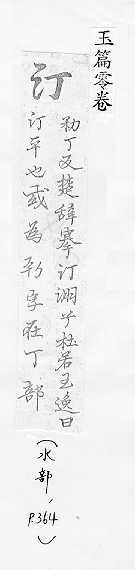 玉篇零卷
汀
勅丁反楚辭搴汀洲兮杜若王逸曰
汀平也或為𣂁字在丁部
（水部，P.364）